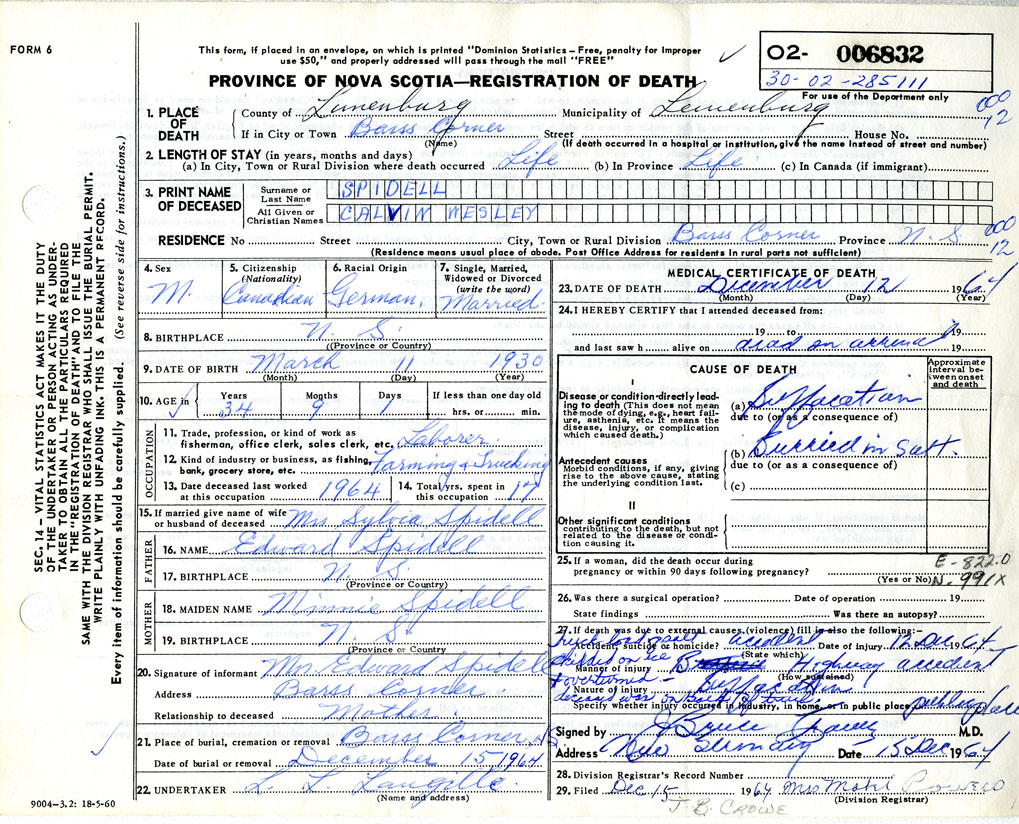 FORM 6
This form, if placed in an envelope, on which is printed "Dominion Statistics – Free, penalty for improper
use $50," and properly addressed will pass through the mail "FREE"
O2- 006832
30-02-285111
For use of the Department only
PROVINCE OF NOVA SCOTIA—REGISTRATION OF DEATH
000
12
1. PLACE OF DEATH
County of Lunenburg Municipality of Lunenburg
If in City or Town Barss Corner Street House No.
(Name) (If death occurred in a hospital or institution, give the name instead of street and number)
2. LENGTH OF STAY (in years, months and days)
(a) In City, Town or Rural Division where death occurred Life (b) In Province Life (c) In Canada (if immigrant)
3. PRINT NAME OF DECEASED
Surname or Last Name SPIDELL
All Given or Christian Names CALVIN WESLEY
000
12
RESIDENCE No Street City, Town or Rural Division Barss Corner Province N. S.
(Residence means usual place of abode. Post Office Address for residents in rural parts not sufficient)
4. Sex M.
5. Citizenship (Nationality) Canadian
6. Racial Origin German.
7. Single, Married, Widowed or Divorced (write the word) Married
8. BIRTHPLACE N. S.
(Province or Country)
9. DATE OF BIRTH March 11 1930
(Month) (Day) (Year)
10. AGE in Years 34 Months 9 Days 1 If less than one day old hrs. or min.
OCCUPATION
11. Trade, profession, or kind of work as fisherman, office clerk, sales clerk, etc. Laborer.
12. Kind of industry or business, as fishing, bank, grocery store, etc. Farming & Trucking
13. Date deceased last worked at this occupation 1964
14. Total yrs. spent in this occupation 17
15. If married give name of wife or husband of deceased Mrs Sylvia Spidell
FATHER
16. NAME Edward Spidell
17. BIRTHPLACE N. S.
(Province or Country)
MOTHER
18. MAIDEN NAME Minnie Spidell
19. BIRTHPLACE N. S.
(Province or Country)
20. Signature of informant Mrs Edward Spidell
Address Barss Corner
Relationship to deceased Mother
21. Place of burial, cremation or removal Barss Corner, N.S
Date of burial or removal December 15, 1964
22. UNDERTAKER L. L. Langille.
(Name and address)
MEDICAL CERTIFICATE OF DEATH
23. DATE OF DEATH December 12 1964
(Month) (Day) (Year)
24. I HEREBY CERTIFY that I attended deceased from:
19 to 19
and last saw h alive on dead on arrival 19
CAUSE OF DEATH
Approximate interval between onset and death
I
Disease or condition directly leading to death (This does not mean the mode of dying, e.g., heart failure, asthenia, etc. It means the disease, injury, or complication which caused death.)
(a) Suffocation
due to (or as a consequence of)
Antecedent causes
Morbid conditions, if any, giving rise to the above cause, stating the underlying condition last.
(b) Burried in Salt.
due to (or as a consequence of)
(c)
II
Other significant conditions
contributing to the death, but not related to the disease or condition causing it.
25. If a woman, did the death occur during pregnancy or within 90 days following pregnancy?
(Yes or No)
E-822.0
N-991X
26. Was there a surgical operation? Date of operation 19
State findings Was there an autopsy?
27. If death was due to external causes (violence) fill in also the following:—
Accident, suicide or homicide? accident Date of injury 12 Dec 1964
(State which)
Truck load salt skidded on ice & overturned - deceased was on back of truck
Manner of injury Highway accident
(How sustained)
Nature of injury Suffocation
Specify whether injury occurred in industry, in home, or in public place public place
Signed by M.D.
Address New Germany Date 15 Dec 1964
28. Division Registrar's Record Number
29. Filed Dec 15 1964 Mrs
(Division Registrar)
J. B. CROWE
SEC. 14 – VITAL STATISTICS ACT MAKES IT THE DUTY
OF THE UNDERTAKER OR PERSON ACTING AS UNDER-
TAKER TO OBTAIN ALL THE PARTICULARS REQUIRED
IN THE "REGISTRATION OF DEATH" AND TO FILE THE
SAME WITH THE DIVISION REGISTRAR WHO SHALL ISSUE THE BURIAL PERMIT.
WRITE PLAINLY WITH UNFADING INK. THIS IS A PERMANENT RECORD.
Every item of information should be carefully supplied. (See reverse side for instructions.)
9004-3.2: 18-5-60